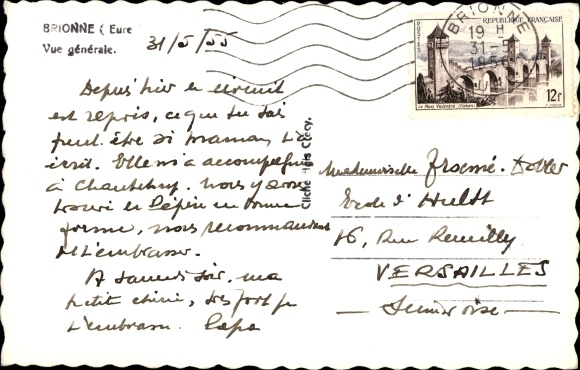 BRIONNE ( Eure
Vue générale.
31/5/55
BRIONNE
19 H
31-5
REPUBLIQUE FRANÇAISE
Le Pont Valentré (Cahors)
12F
Depuis hier le circuit
est repris, ce que tu sais
peut être si maman t'a
écrit. Elle m'a accompagné
à Chantecoq. nous y avons
trouvé en bonne
forme, nous recommandant
de t'embrasser.
A samedi soir, ma
petit chérie, très fort je
t'embrasse. Papa
Cliché
Mademoiselle
Ecole d'Hulst
16, Rue Remilly
VERSAILLES
Seine et Oise